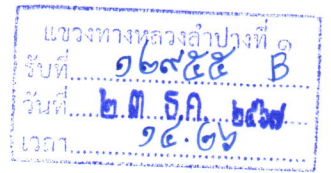 แขวงทางหลวงลำปางที่ ๑
รับที่ ๑๒๙๕๕ B
วันที่ ๒๓ ธ.ค. ๒๕๖๗
เวลา ๑๔.๒๖